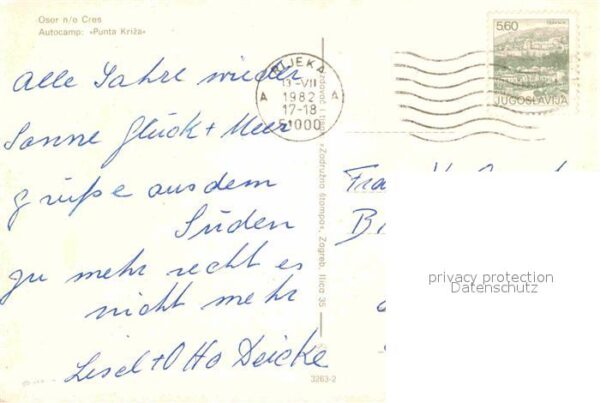 Osor n/o Cres
Autocamp: «Punta Križa»
alle Jahre wieder
Sonne Glück + Meer
grüße aus dem
Süden
zu mehr reicht es
nicht mehr
Lisel + Otto Deicke
RIJEKA
11-VII
1982
17-18
51000
A A
5.60
JUGOSLAVIJA
»Zadružna štampa«, Zagreb, Ilica 35
3263-2
privacy protection
Datenschutz